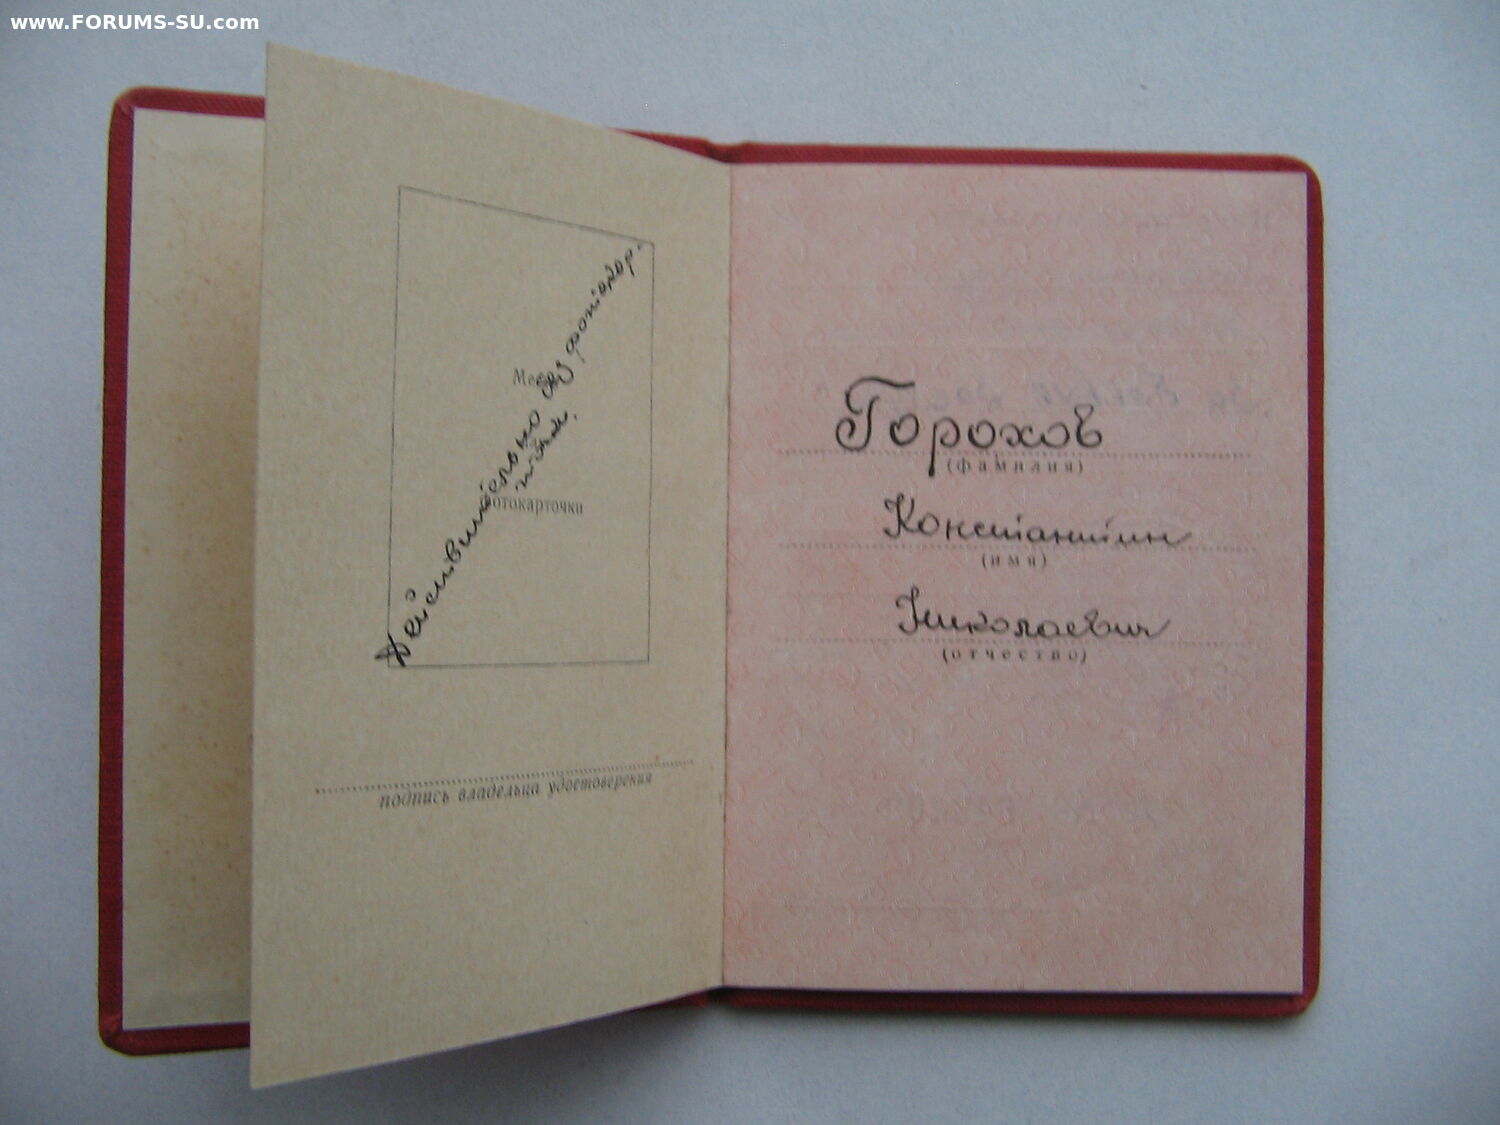 www.FORUMS-SU.com
Место
фотокарточки
Действительно без фотокар.
подпись владельца удостоверения
Горохов
(фамилия)
Константин
(имя)
Николаевич
(отчество)